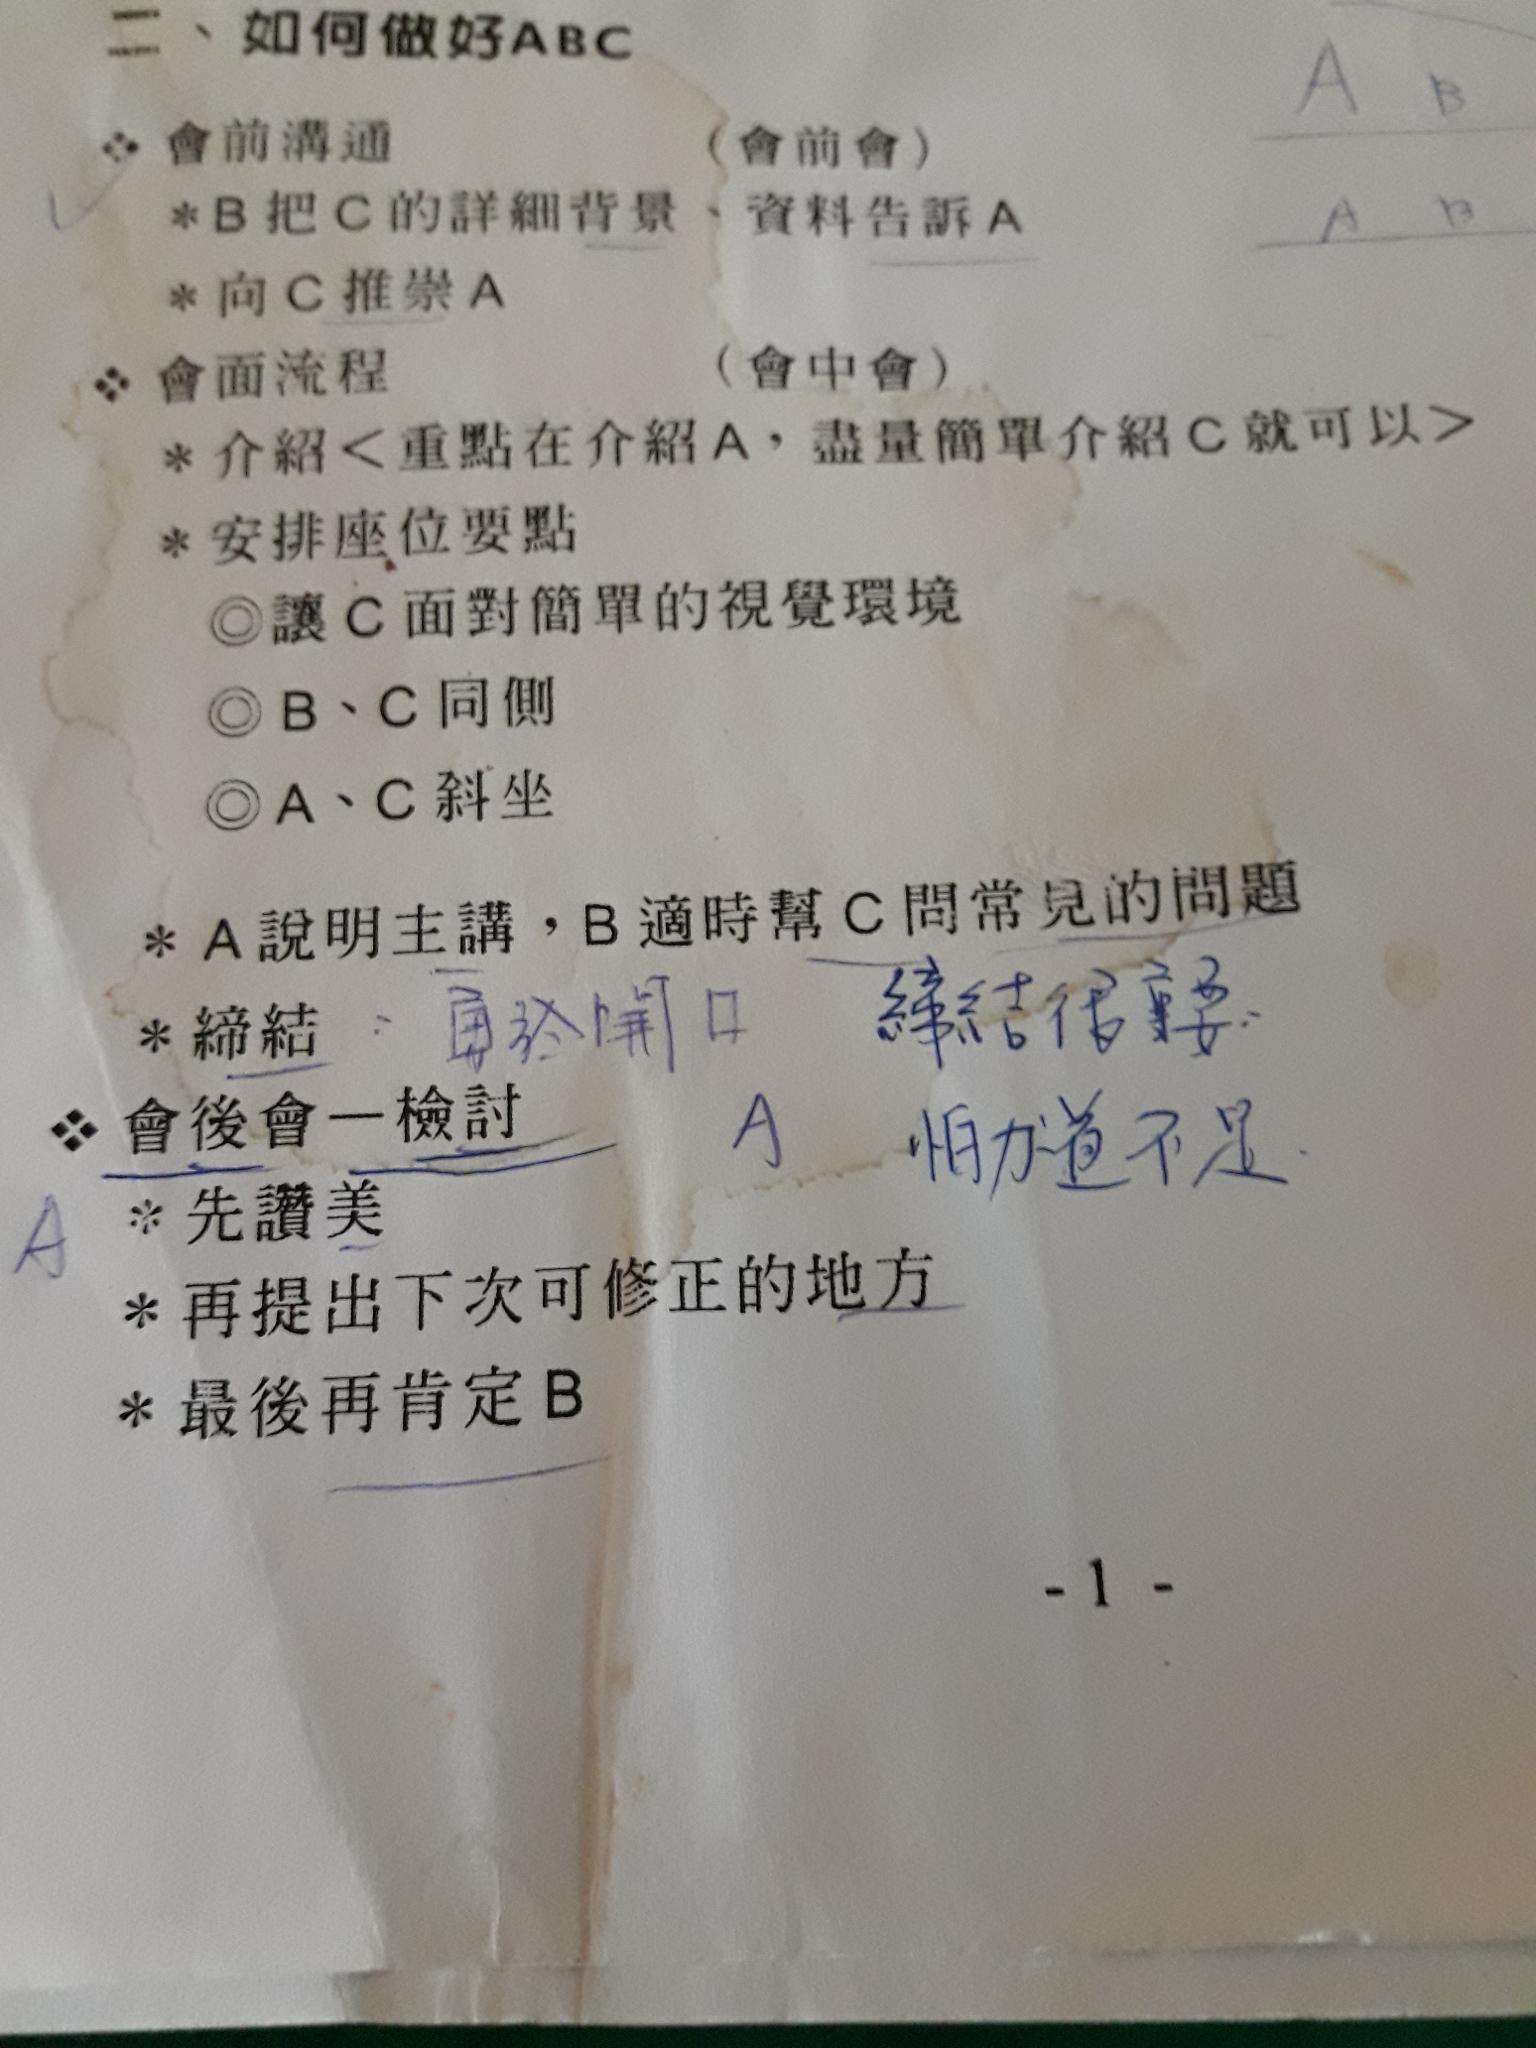 二、如何做好ABC
A B
❖ 會前溝通 （會前會）
＊B把C的詳細背景、資料告訴A
A B
＊向C推崇A
❖ 會面流程 （會中會）
＊介紹＜重點在介紹A，盡量簡單介紹C就可以＞
＊安排座位要點
◎讓C面對簡單的視覺環境
◎B、C同側
◎A、C斜坐
＊A說明主講，B適時幫C問常見的問題
＊締結：勇於開口 締結很重要.
❖ 會後會—檢討 A 怕力道不足.
A ＊先讚美
＊再提出下次可修正的地方
＊最後再肯定B
- 1 -